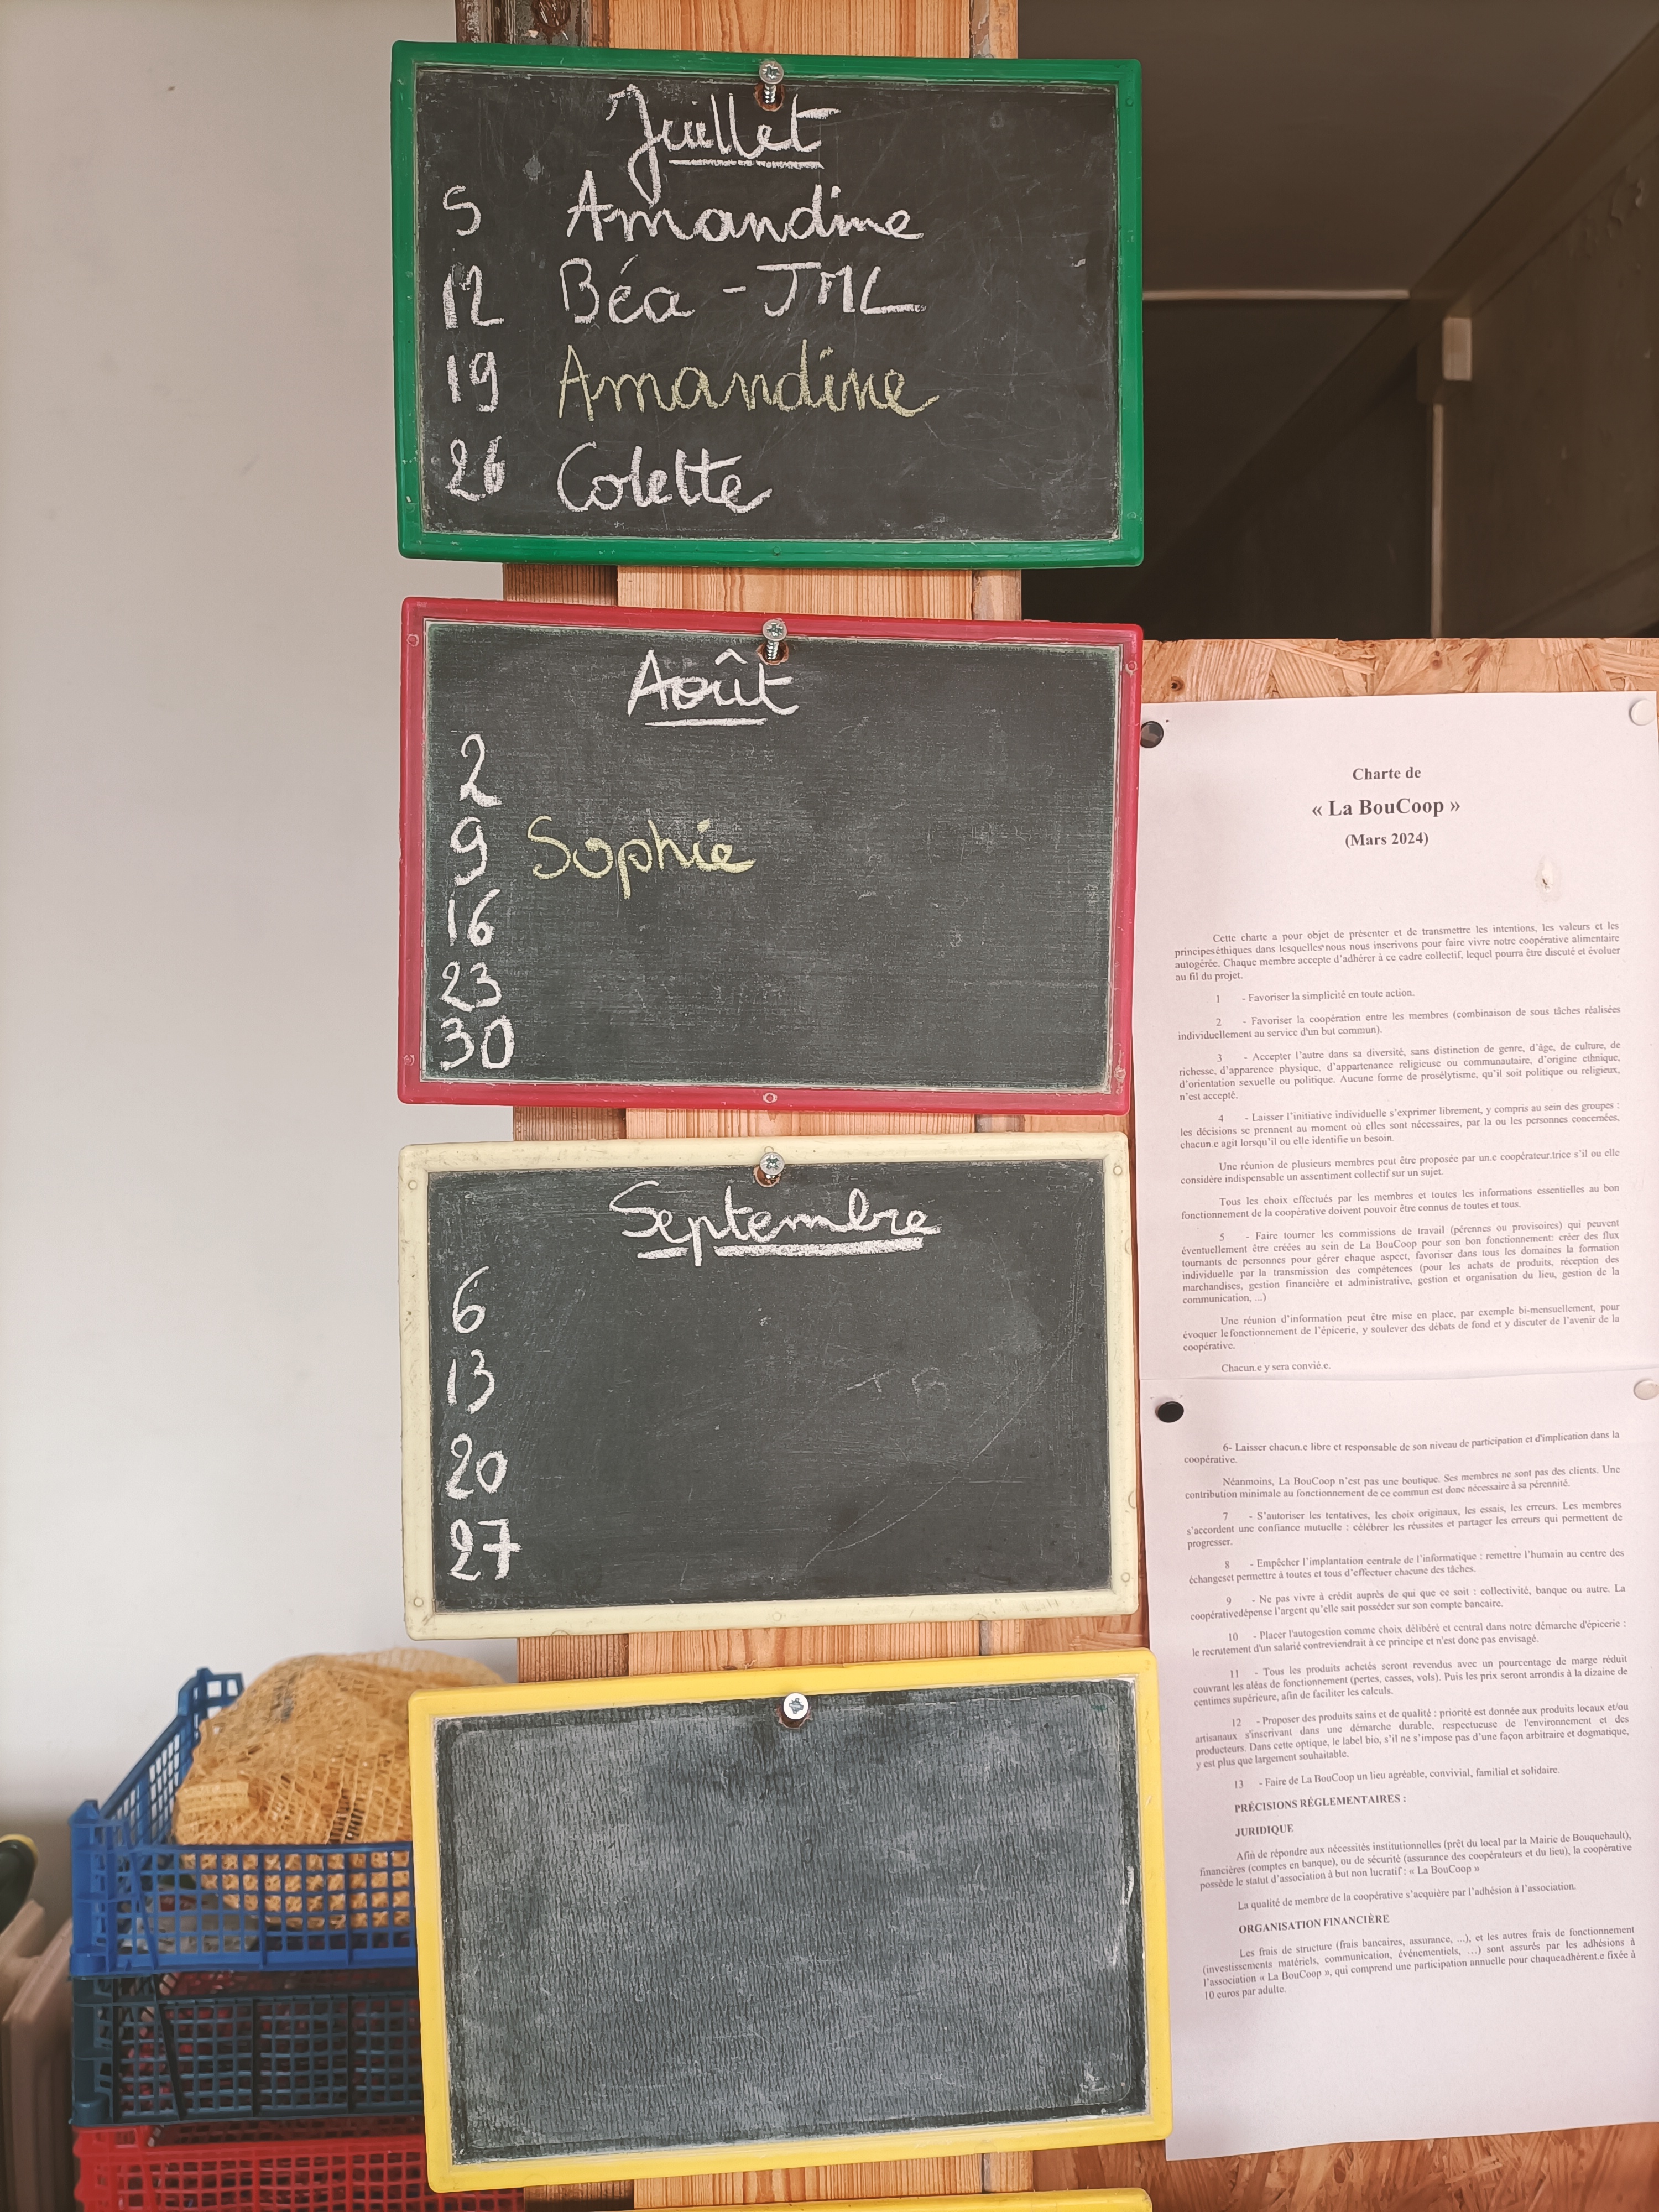 Juillet
5 Amandine
12 Béa - JML
19 Amandine
26 Colette
Août
2
9 Sophie
16
23
30
Septembre
6
13
20
27
Charte de
« La BouCoop »
(Mars 2024)
Cette charte a pour objet de présenter et de transmettre les intentions, les valeurs et les
principes éthiques dans lesquelles nous nous inscrivons pour faire vivre notre coopérative alimentaire
autogérée. Chaque membre accepte d'adhérer à ce cadre collectif, lequel pourra être discuté et évoluer
au fil du projet.
1 - Favoriser la simplicité en toute action.
2 - Favoriser la coopération entre les membres (combinaison de sous tâches réalisées
individuellement au service d'un but commun).
3 - Accepter l'autre dans sa diversité, sans distinction de genre, d'âge, de culture, de
richesse, d'apparence physique, d'appartenance religieuse ou communautaire, d'origine ethnique,
d'orientation sexuelle ou politique. Aucune forme de prosélytisme, qu'il soit politique ou religieux,
n'est accepté.
4 - Laisser l'initiative individuelle s'exprimer librement, y compris au sein des groupes :
les décisions se prennent au moment où elles sont nécessaires, par la ou les personnes concernées,
chacun.e agit lorsqu'il ou elle identifie un besoin.
Une réunion de plusieurs membres peut être proposée par un.e coopérateur.trice s'il ou elle
considère indispensable un assentiment collectif sur un sujet.
Tous les choix effectués par les membres et toutes les informations essentielles au bon
fonctionnement de la coopérative doivent pouvoir être connus de toutes et tous.
5 - Faire tourner les commissions de travail (pérennes ou provisoires) qui peuvent
éventuellement être créées au sein de La BouCoop pour son bon fonctionnement: créer des flux
tournants de personnes pour gérer chaque aspect, favoriser dans tous les domaines la formation
individuelle par la transmission des compétences (pour les achats de produits, réception des
marchandises, gestion financière et administrative, gestion et organisation du lieu, gestion de la
communication, ...)
Une réunion d'information peut être mise en place, par exemple bi-mensuellement, pour
évoquer le fonctionnement de l'épicerie, y soulever des débats de fond et y discuter de l'avenir de la
coopérative.
Chacun.e y sera convié.e.
6- Laisser chacun.e libre et responsable de son niveau de participation et d'implication dans la
coopérative.
Néanmoins, La BouCoop n'est pas une boutique. Ses membres ne sont pas des clients. Une
contribution minimale au fonctionnement de ce commun est donc nécessaire à sa pérennité.
7 - S'autoriser les tentatives, les choix originaux, les essais, les erreurs. Les membres
s'accordent une confiance mutuelle : célébrer les réussites et partager les erreurs qui permettent de
progresser.
8 - Empêcher l'implantation centrale de l'informatique : remettre l'humain au centre des
échangeset permettre à toutes et tous d'effectuer chacune des tâches.
9 - Ne pas vivre à crédit auprès de qui que ce soit : collectivité, banque ou autre. La
coopérativedépense l'argent qu'elle sait posséder sur son compte bancaire.
10 - Placer l'autogestion comme choix délibéré et central dans notre démarche d'épicerie :
le recrutement d'un salarié contreviendrait à ce principe et n'est donc pas envisagé.
11 - Tous les produits achetés seront revendus avec un pourcentage de marge réduit
couvrant les aléas de fonctionnement (pertes, casses, vols). Puis les prix seront arrondis à la dizaine de
centimes supérieure, afin de faciliter les calculs.
12 - Proposer des produits sains et de qualité : priorité est donnée aux produits locaux et/ou
artisanaux s'inscrivant dans une démarche durable, respectueuse de l'environnement et des
producteurs. Dans cette optique, le label bio, s'il ne s'impose pas d'une façon arbitraire et dogmatique,
y est plus que largement souhaitable.
13 - Faire de La BouCoop un lieu agréable, convivial, familial et solidaire.
PRÉCISIONS RÈGLEMENTAIRES :
JURIDIQUE
Afin de répondre aux nécessités institutionnelles (prêt du local par la Mairie de Bouquehault),
financières (comptes en banque), ou de sécurité (assurance des coopérateurs et du lieu), la coopérative
possède le statut d'association à but non lucratif : « La BouCoop »
La qualité de membre de la coopérative s'acquière par l'adhésion à l'association.
ORGANISATION FINANCIÈRE
Les frais de structure (frais bancaires, assurance, ...), et les autres frais de fonctionnement
(investissements matériels, communication, événementiels, ...) sont assurés par les adhésions à
l'association « La BouCoop », qui comprend une participation annuelle pour chaqueadhérent.e fixée à
10 euros par adulte.